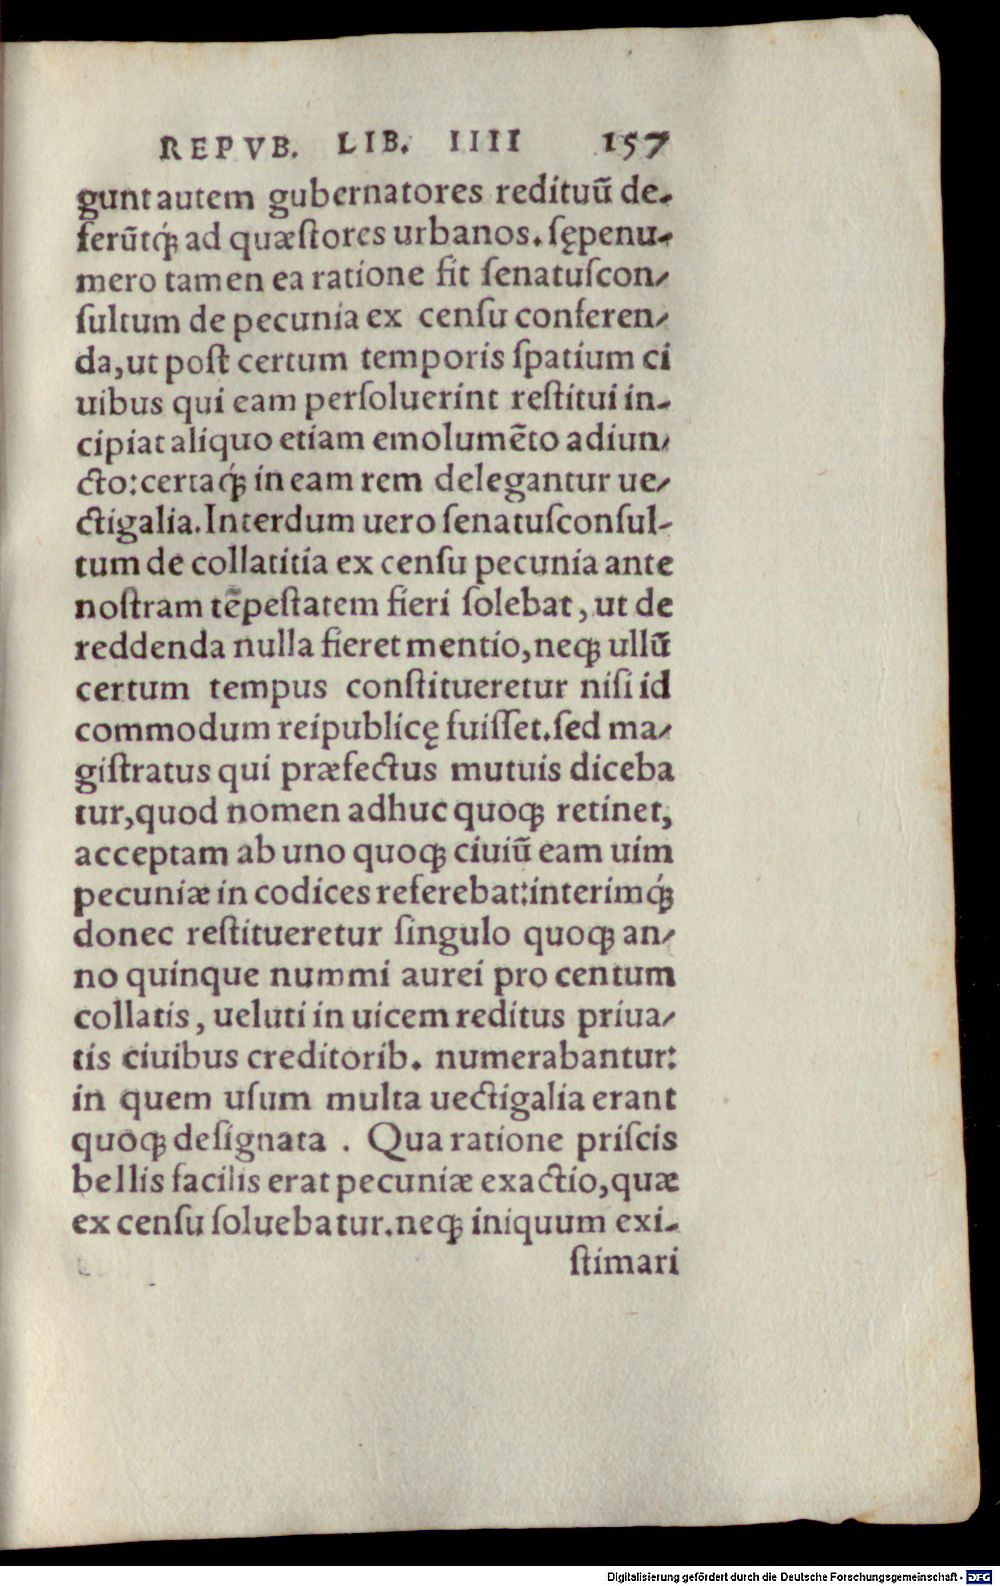 REPVB. LIB. IIII 157
gunt autem gubernatores redituũ de-
ferũtq́; ad quæstores urbanos. sępenu-
mero tamen ea ratione fit senatuscon-
sultum de pecunia ex censu conferen-
da, ut post certum temporis spatium ci
uibus qui eam persoluerint restitui in-
cipiat aliquo etiam emolumẽto adiun-
cto: certaq́; in eam rem delegantur ue-
ctigalia. Interdum uero senatusconsul-
tum de collatitia ex censu pecunia ante
nostram tẽpestatem fieri solebat, ut de
reddenda nulla fieret mentio, neq; ullũ
certum tempus constitueretur nisi id
commodum reipublicę fuisset. sed ma-
gistratus qui præfectus mutuis diceba
tur, quod nomen adhuc quoq; retinet,
acceptam ab uno quoq; ciuiũ eam uim
pecuniæ in codices referebat: interimq́;
donec restitueretur singulo quoq; an-
no quinque nummi aurei pro centum
collatis, ueluti in uicem reditus priua-
tis ciuibus creditorib. numerabantur:
in quem usum multa uectigalia erant
quoq; designata . Qua ratione priscis
bellis facilis erat pecuniæ exactio, quæ
ex censu soluebatur. neq; iniquum exi-
stimari
Digitalisierung gefördert durch die Deutsche Forschungsgemeinschaft - DFG